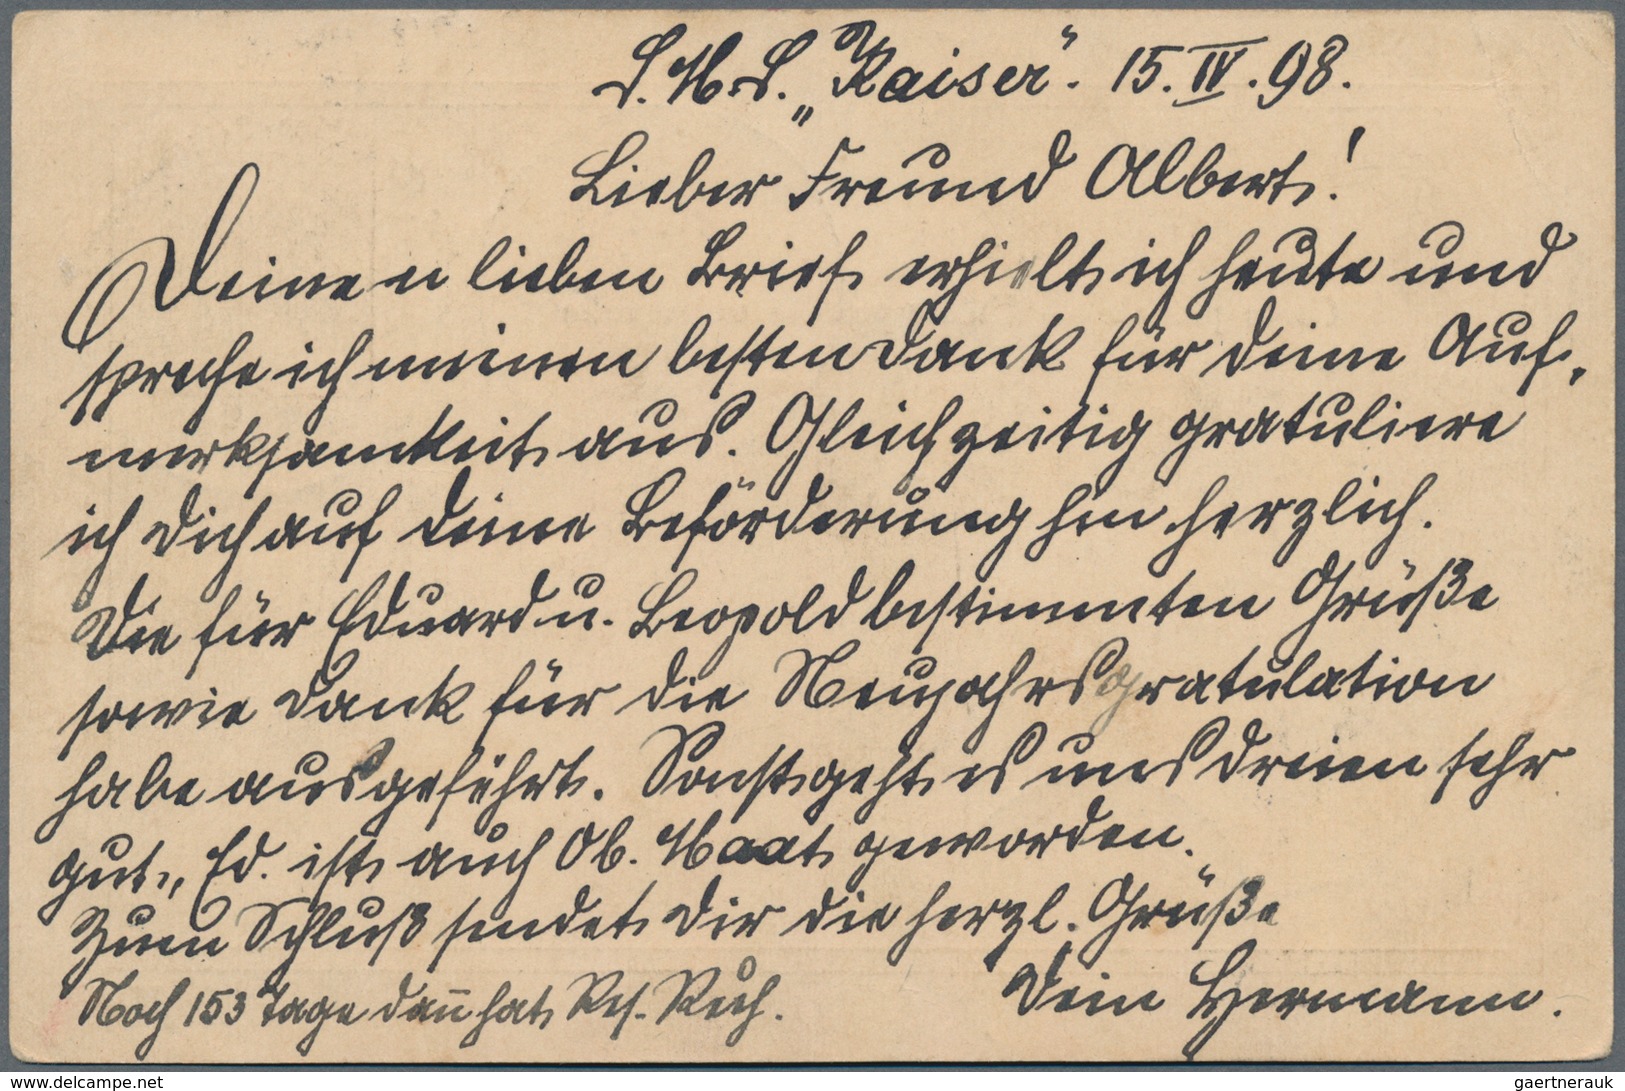 S.M.S. „Kaiser“. 15.IV.98.
Lieber Freund Albert!
Deinen lieben Brief erhielt ich heute und
spreche ich meinen besten Dank für Deine Auf-
merksamkeit aus. Gleichzeitig gratuliere
ich Dich auf Deine Beförderung hin herzlich.
Die für Eduard u. Leopold bestimmten Grüße
sowie Dank für die Neujahrsgratulation
habe ausgeführt. Sonst geht es uns dreien sehr
gut, Ed. ist auch Ob. Maat geworden.
Zum Schluß sendet Dir die herzl. Grüße
Dein Hermann.
Noch 153 Tage dañ hat Res. Ruh.
www.delcampe.net
gaertnerauk